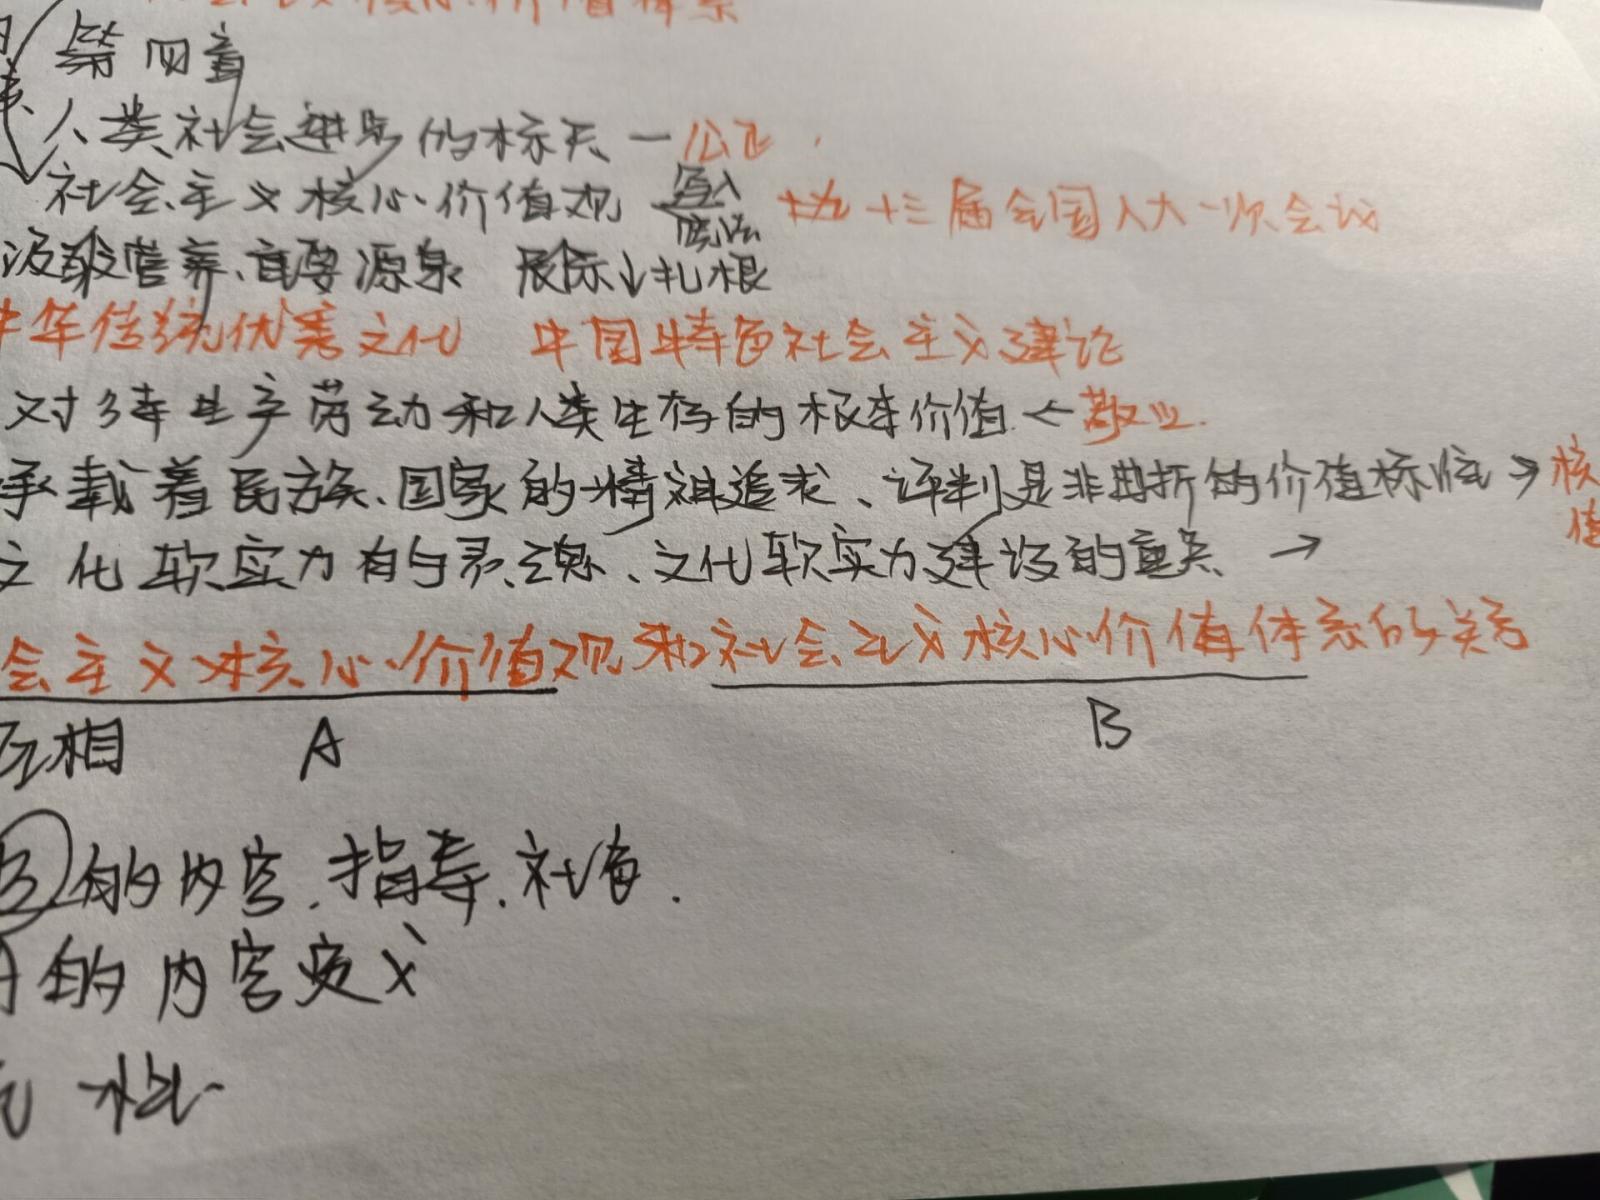 核心价值体系
第四章
人类社会进步的标志 — 公正.
社会主义核心价值观 写入宪法 十三届全国人大一次会议
汲取营养、首要源泉 展际 扎根
中华传统优秀文化 中国特色社会主义建论
对 生产劳动和人类生存的根本价值 ← 敬业.
承载着民族、国家的精神追求、评判是非曲折的价值标准 → 核
值
文化软实力有的灵魂、文化软实力建设的重点 →
会主义核心价值观和社会主义核心价值体系的关系
互相 A B
B的内容.指导.社有.
的内容定义
性